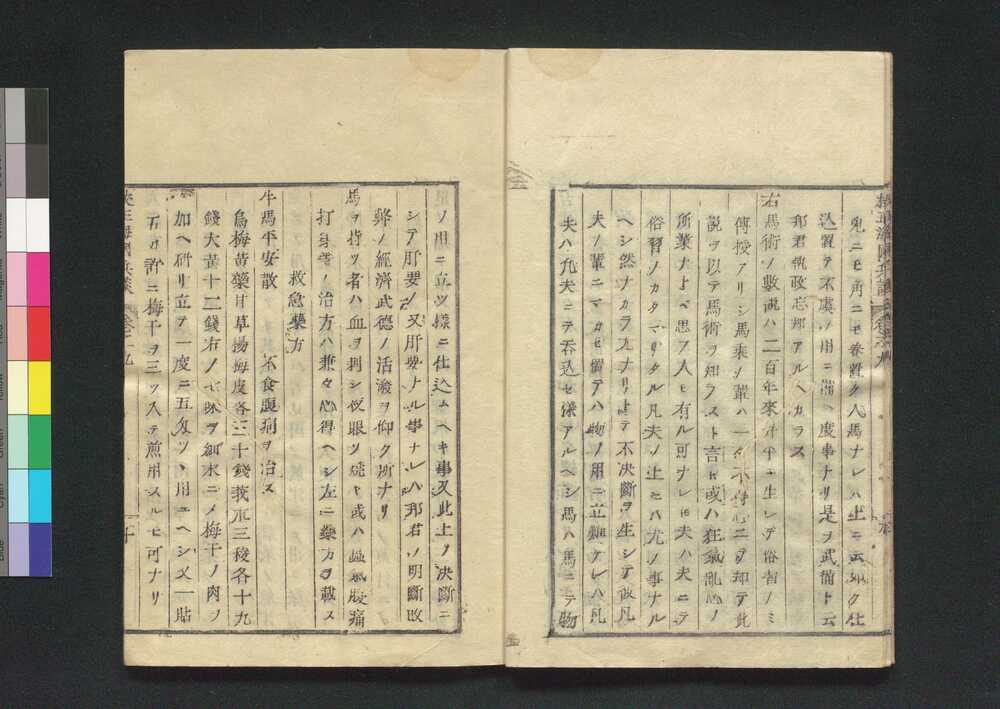 兎ニモ角ニモ巻置ク人馬ナレハ上ニ云如ク仕
込置テ不虞ノ用ニ備ヘ度事ナリ是ヲ武備ト云
邦君執政忘却アルヘカラス
右馬術ノ數說ハ二百年來升平ニ生レテ俗習ノミ
傳授アリシ馬乘ノ輩ハ一タ不得心ニテ却テ此
說ヲ以テ馬術ヲ知ラスト言ヒ或ハ狂氣亂心ノ
所業ナトヽ思フ人モ有ル可ナレ𪜈夫ハ夫ニテ
俗習ノカタマリタル凡夫ノ上ニハ尤ノ事ナル
ヘシ然ナカラ尤ナリトテ不決斷ヲ生シテ彼凡
夫ノ輩ニマカセ置テハ物ノ用ニ立難ケレハ凡
夫ハ凡夫ニテ呑込セ樣アルヘシ馬ハ馬ニテ物
ノ用ニ立ツ樣ニ仕込ムヘキ事又此上ノ決斷ニ
シテ肝要ノ又肝要トル事ナレハ邦君ノ明斷政
ノ經濟武德ノ活潑ヲ仰ク所ナリ
馬ヲ持ツ者ハ血ヲ刺シ夜眼ヲ燒ト或ハ腹痛
打身等ノ治方ハ兼々心得ヘシ左ニ藥方ヲ載ス
救急藥方
牛馬平安散 不食腹痛ヲ治ス
烏梅黃蘗甘草楊梅皮各三十錢莪朮三稜各十九
錢大黃十二錢右ノ七味ヲ細末ニメ梅干ノ肉ヲ
加ヘ研リ立テ一度ニ五匁ツヽ用ユヘシ又一貼
五匁許ニ梅干ヲ三ツ入テ煎用スルモ可ナリ